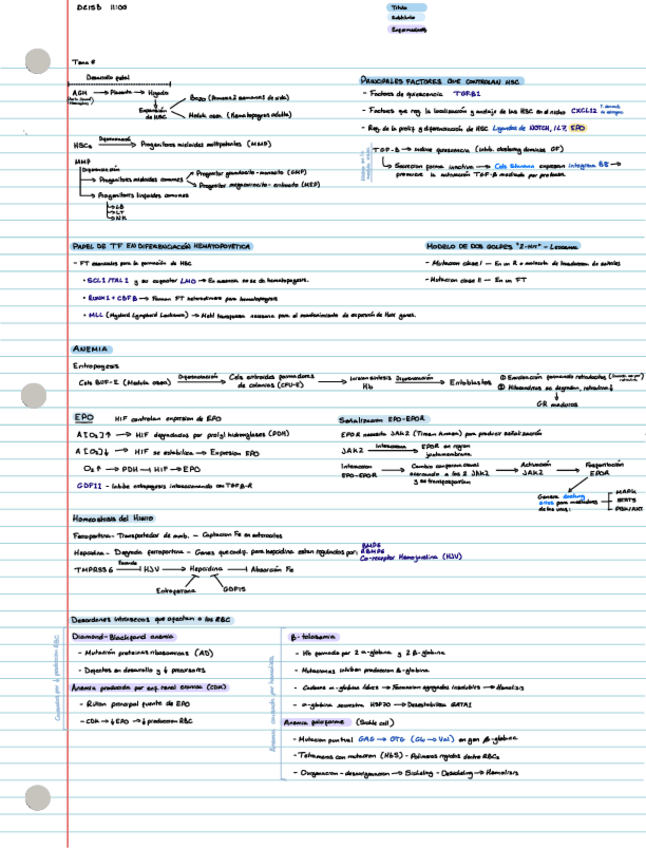 DCISB 11:00
Título
Subtítulo
Enfermedades
Tema 8
Desarrollo fetal
AGM → Placenta → Hígado
Expansión de HSC
Bazo (Primeras 2 semanas de vida)
Médula ósea (Hematopoyesis adulta)
HSCs Diferenciación → Progenitores mieloides multipotentes (MMP)
MMP
Diferenciación
Progenitores mieloides comunes
Progenitor granulocito-monocito (GMP)
Progenitor megacariocito-eritrocito (MEP)
Progenitores linfoides comunes
LB
LT
NK
PRINCIPALES FACTORES QUE CONTROLAN HSC
- Factores de quiescencia TGFB1
- Factores que reg. la localización y anclaje de las HSC en el nicho CXCL12
- Reg. de la prolif. y diferenciación de HSC Ligandos de NOTCH, IL7, EPO
TGF-B → Induce quiescencia (inhib. clustering dominios GF)
Secreción forma inactiva → Cels Schwann expresan integrina B8 →
promueve la activación TGF-B mediada por proteasa
PAPEL DE TF EN DIFERENCIACIÓN HEMATOPOYÉTICA
- FT esenciales para la formación de HSC
• SCL1/TAL1 y su cofactor LMO → En ausencia no se da hematopoyesis.
• RUNX1 + CBFB → Forman FT heterodímero para hematopoyesis
• MLL (Myeloid Lymphoid Leukemia) → Metil transferasa necesaria para el mantenimiento de expresión de Hox genes.
MODELO DE DOS GOLPES "2-HIT" - Leucemia
- Mutación clase I - En un R o molécula de transducción de señales
- Mutación clase II - En un FT
ANEMIA
Eritropoyesis
Cels BUF-E (Médula ósea) Diferenciación → Cels eritroides formadoras de colonias (CFU-E) → Inician síntesis Hb Diferenciación → Eritoblastos
① Enucleación formando reticulocitos
② Mitocondrias se degradan, reticulina↓
GR maduros
EPO HIF controlan expresión de EPO
A [O₂]↑ → HIF degradados por prolyl hidroxylases (PDH)
A [O₂]↓ → HIF se estabiliza → Expresión EPO
O₂↑ → PDH ⊣ HIF → EPO
GDF11 - Inhibe eritropoyesis interaccionando con TGFB-R
Señalización EPO-EPOR
EPOR necesita JAK2 (Tirosin kinasa) para producir señalización
JAK2 Interacciona → EPOR en región yuxtamembrana
Interacción EPO-EPOR → Cambio conformacional acercando a las 2 JAK2 y se transfosforilan → Activación JAK2 → Fosforilación EPOR
Genera docking sites para mediadores de las vías:
MAPK
STAT5
PI3K/AKT
Homeostasis del Hierro
Ferroportina - Transportador de memb. - Captación Fe en enterocitos
Hepcidina - Degrada ferroportina - Genes que codif. para hepcidina están regulados por:
BMP6
RBMP6
Co-receptor Hemojuvelina (HJV)
TMPRSS6 Escinde ⊣ HJV → Hepcidina ⊣ Absorción Fe
Eritroferrona
GDF15
Desordenes intrínsecos que afectan a los RBC
Causadas por ↓ producción RBC
Diamond-Blackfand anemia
- Mutación proteínas ribosómicas (AD)
- Defectos en desarrollo y ↓ precursores
Anemia producida por enf. renal crónica (CDK)
- Riñón principal fuente de EPO
- CDK → ↓ EPO → ↓ producción RBC
Anemias causadas por hemólisis
β-talasemia
- Hb formada por 2 α-globina y 2 β-globina
- Mutaciones inhiben producción β-globina
- Cadena α-globina libres → Formación agregados insolubles → Hemólisis
- α-globina secuestra HSP70 → Desestabiliza GATA1
Anemia falciforme (Sickle cell)
- Mutación puntual GAG → GTG (Glu → Val) en gen β-globina
- Tetrámeros con mutación (HbS) - Polímeros rígidos dentro RBCs
- Oxigenación - desoxigenación → Sickling - Desickling → Hemólisis